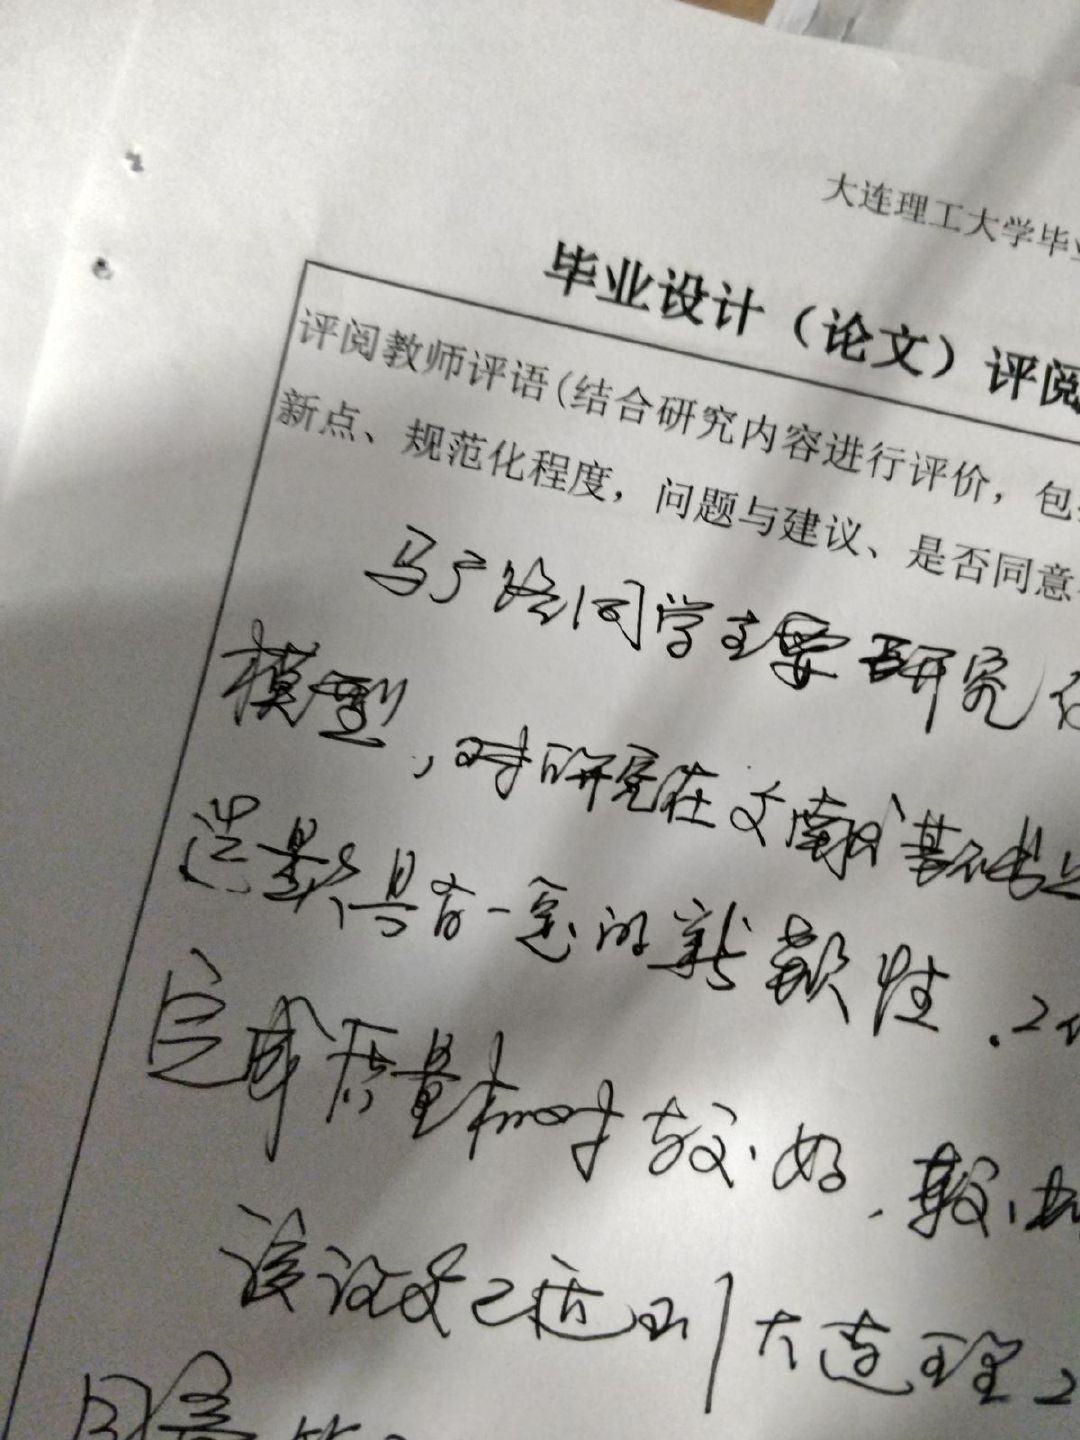 大连理工大学毕业
毕业设计（论文）评阅
评阅教师评语(结合研究内容进行评价，包
新点、规范化程度，问题与建议、是否同意
马广路同学主要研究
模型，对研究在文献基础上
选题具有一定的新颖性．工作
完成质量相对较好．较
该论文已达到大连理工
同意